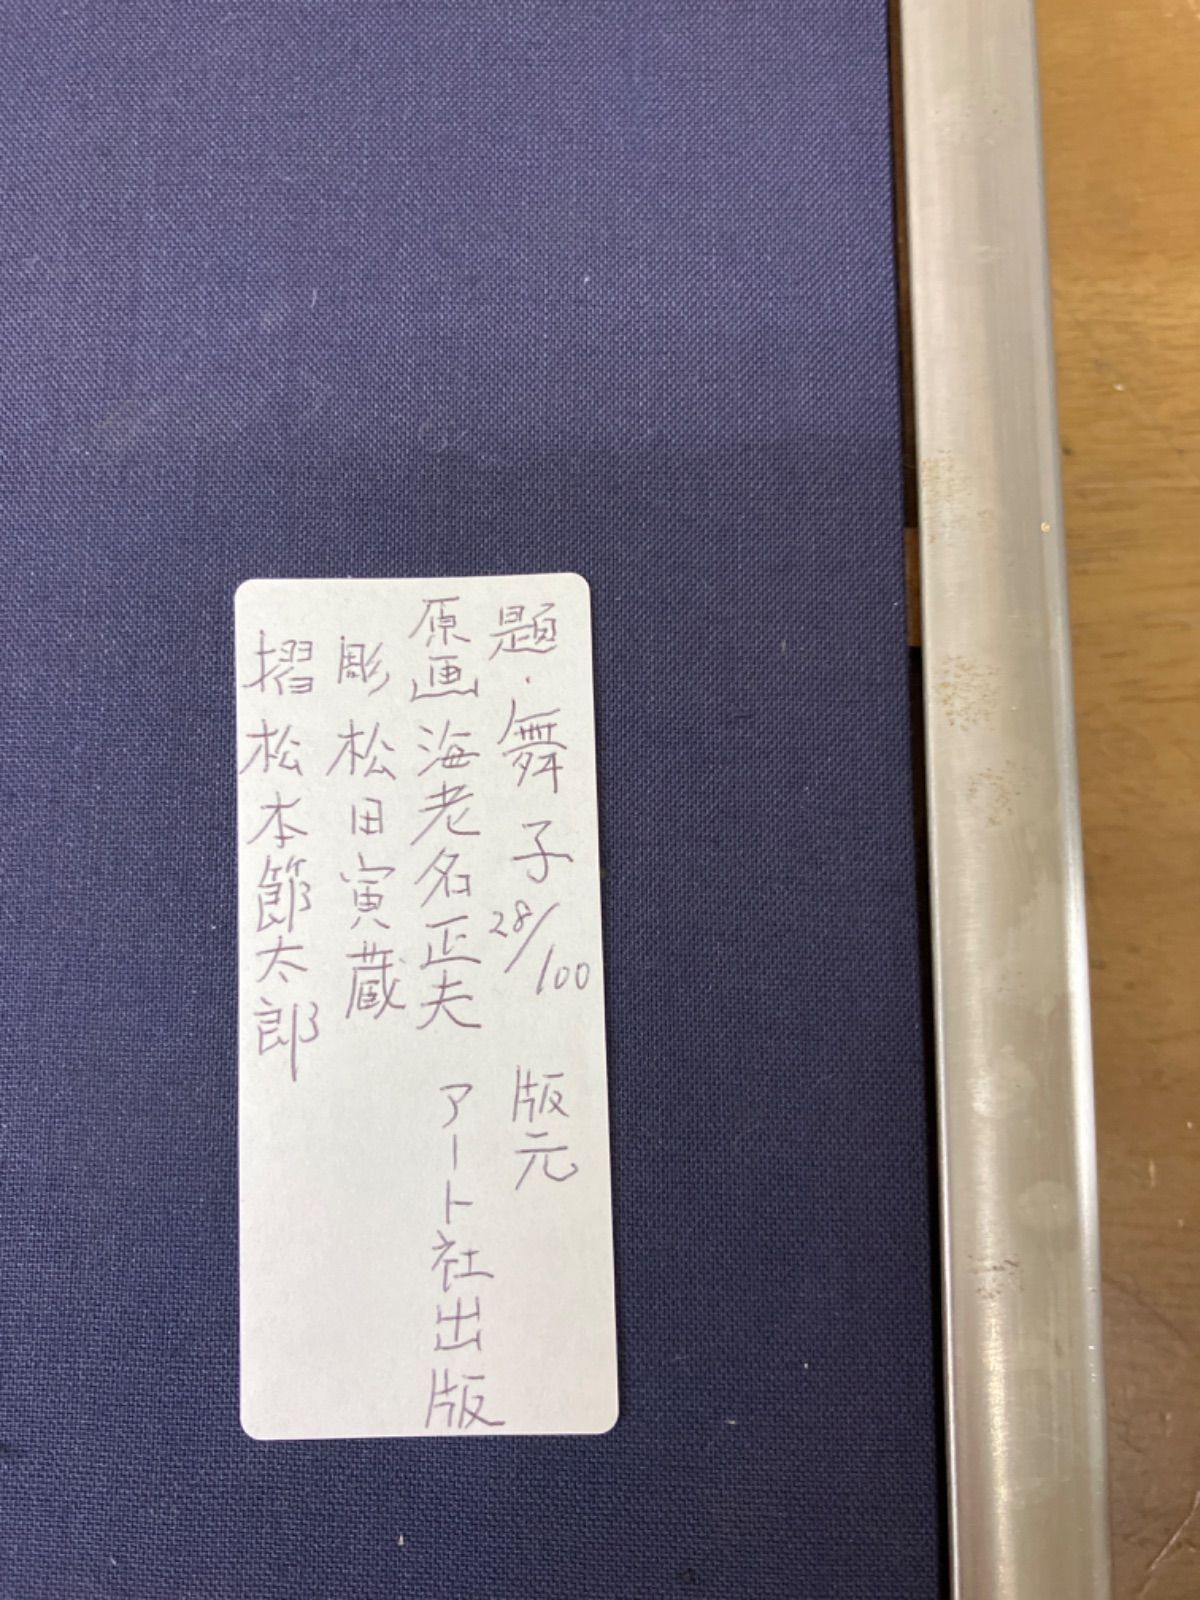 題・舞子 28/100 版元
原画 海老名正夫 アート社出版
彫 松田寅蔵
摺 松本節太郎